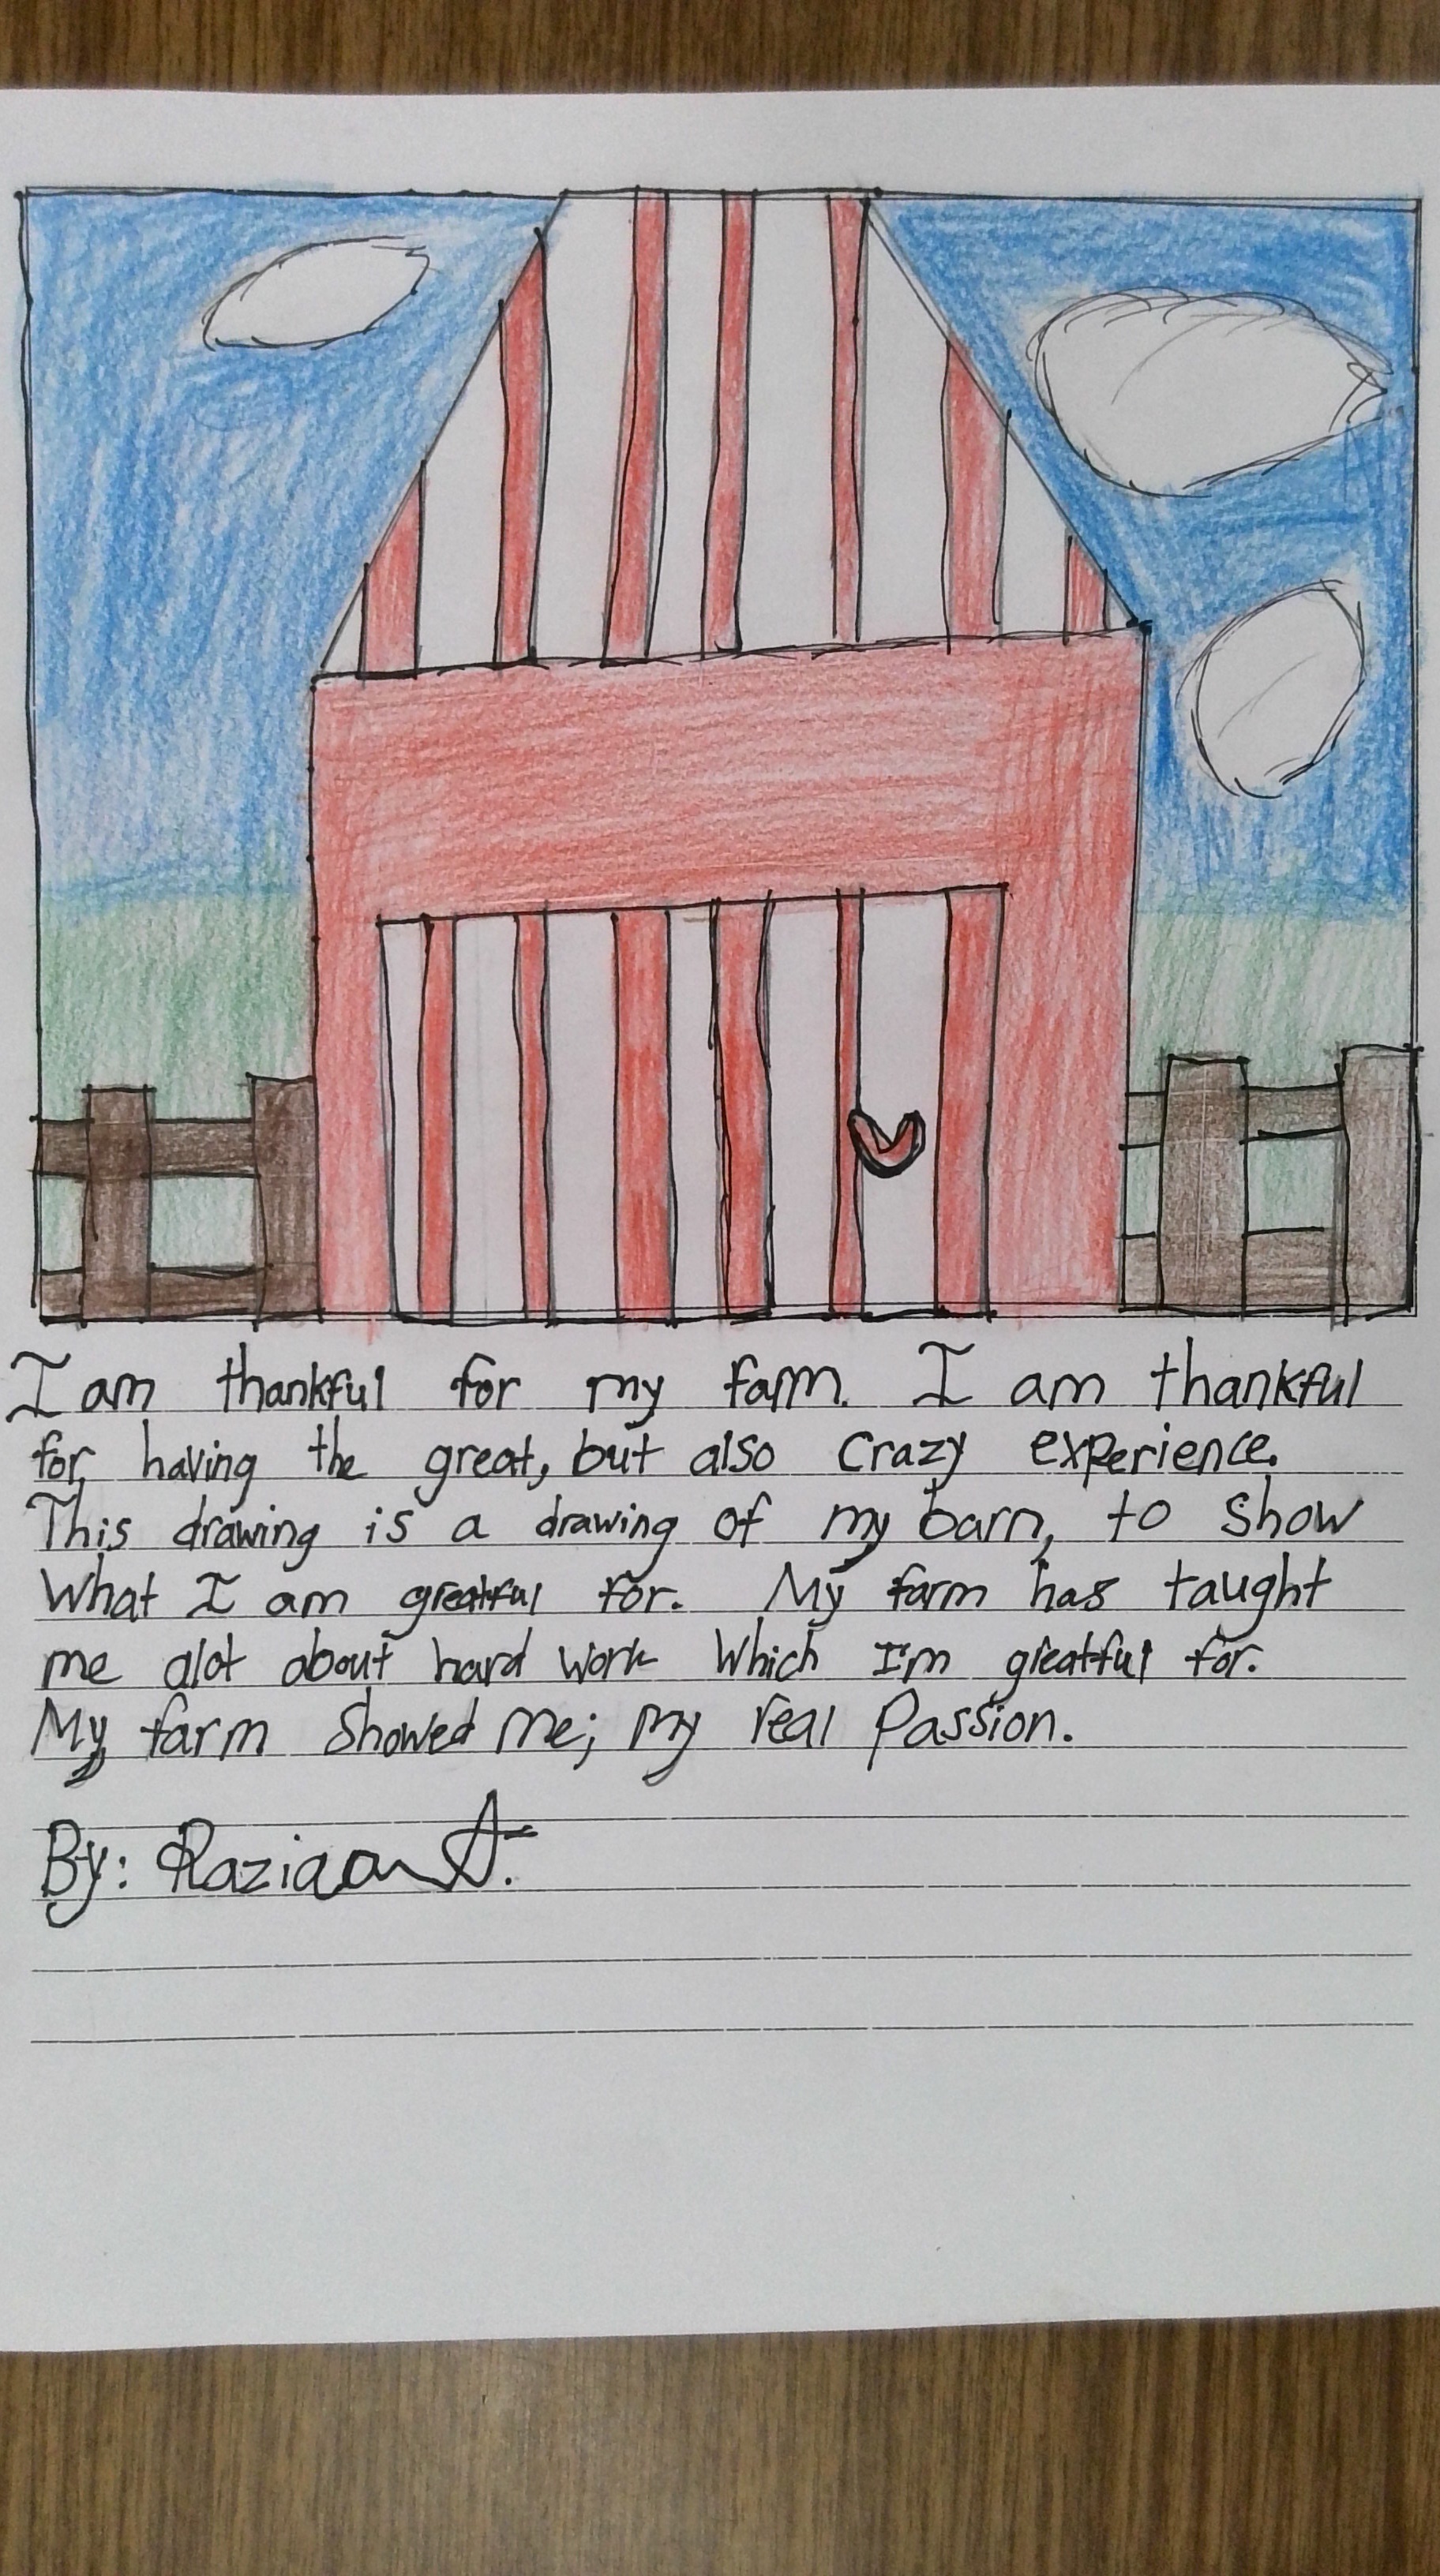 I am thankful for my farm. I am thankful
for having the great, but also crazy experience.
This drawing is a drawing of my barn, to show
what I am greatful for. My farm has taught
me alot about hard work which I'm greatful for.
My farm showed me; my real passion.
By: A.